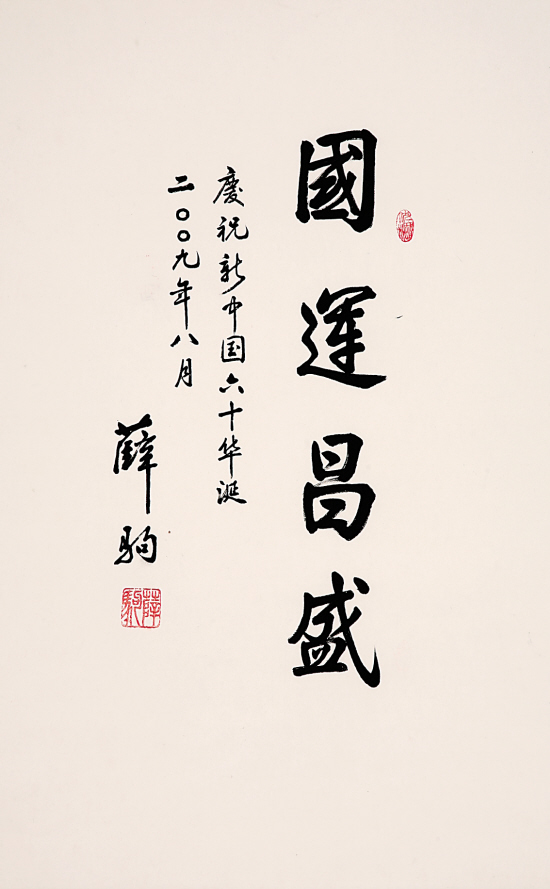 國運昌盛
慶祝新中国六十华诞
二〇〇九年八月
薛驹
薛駒